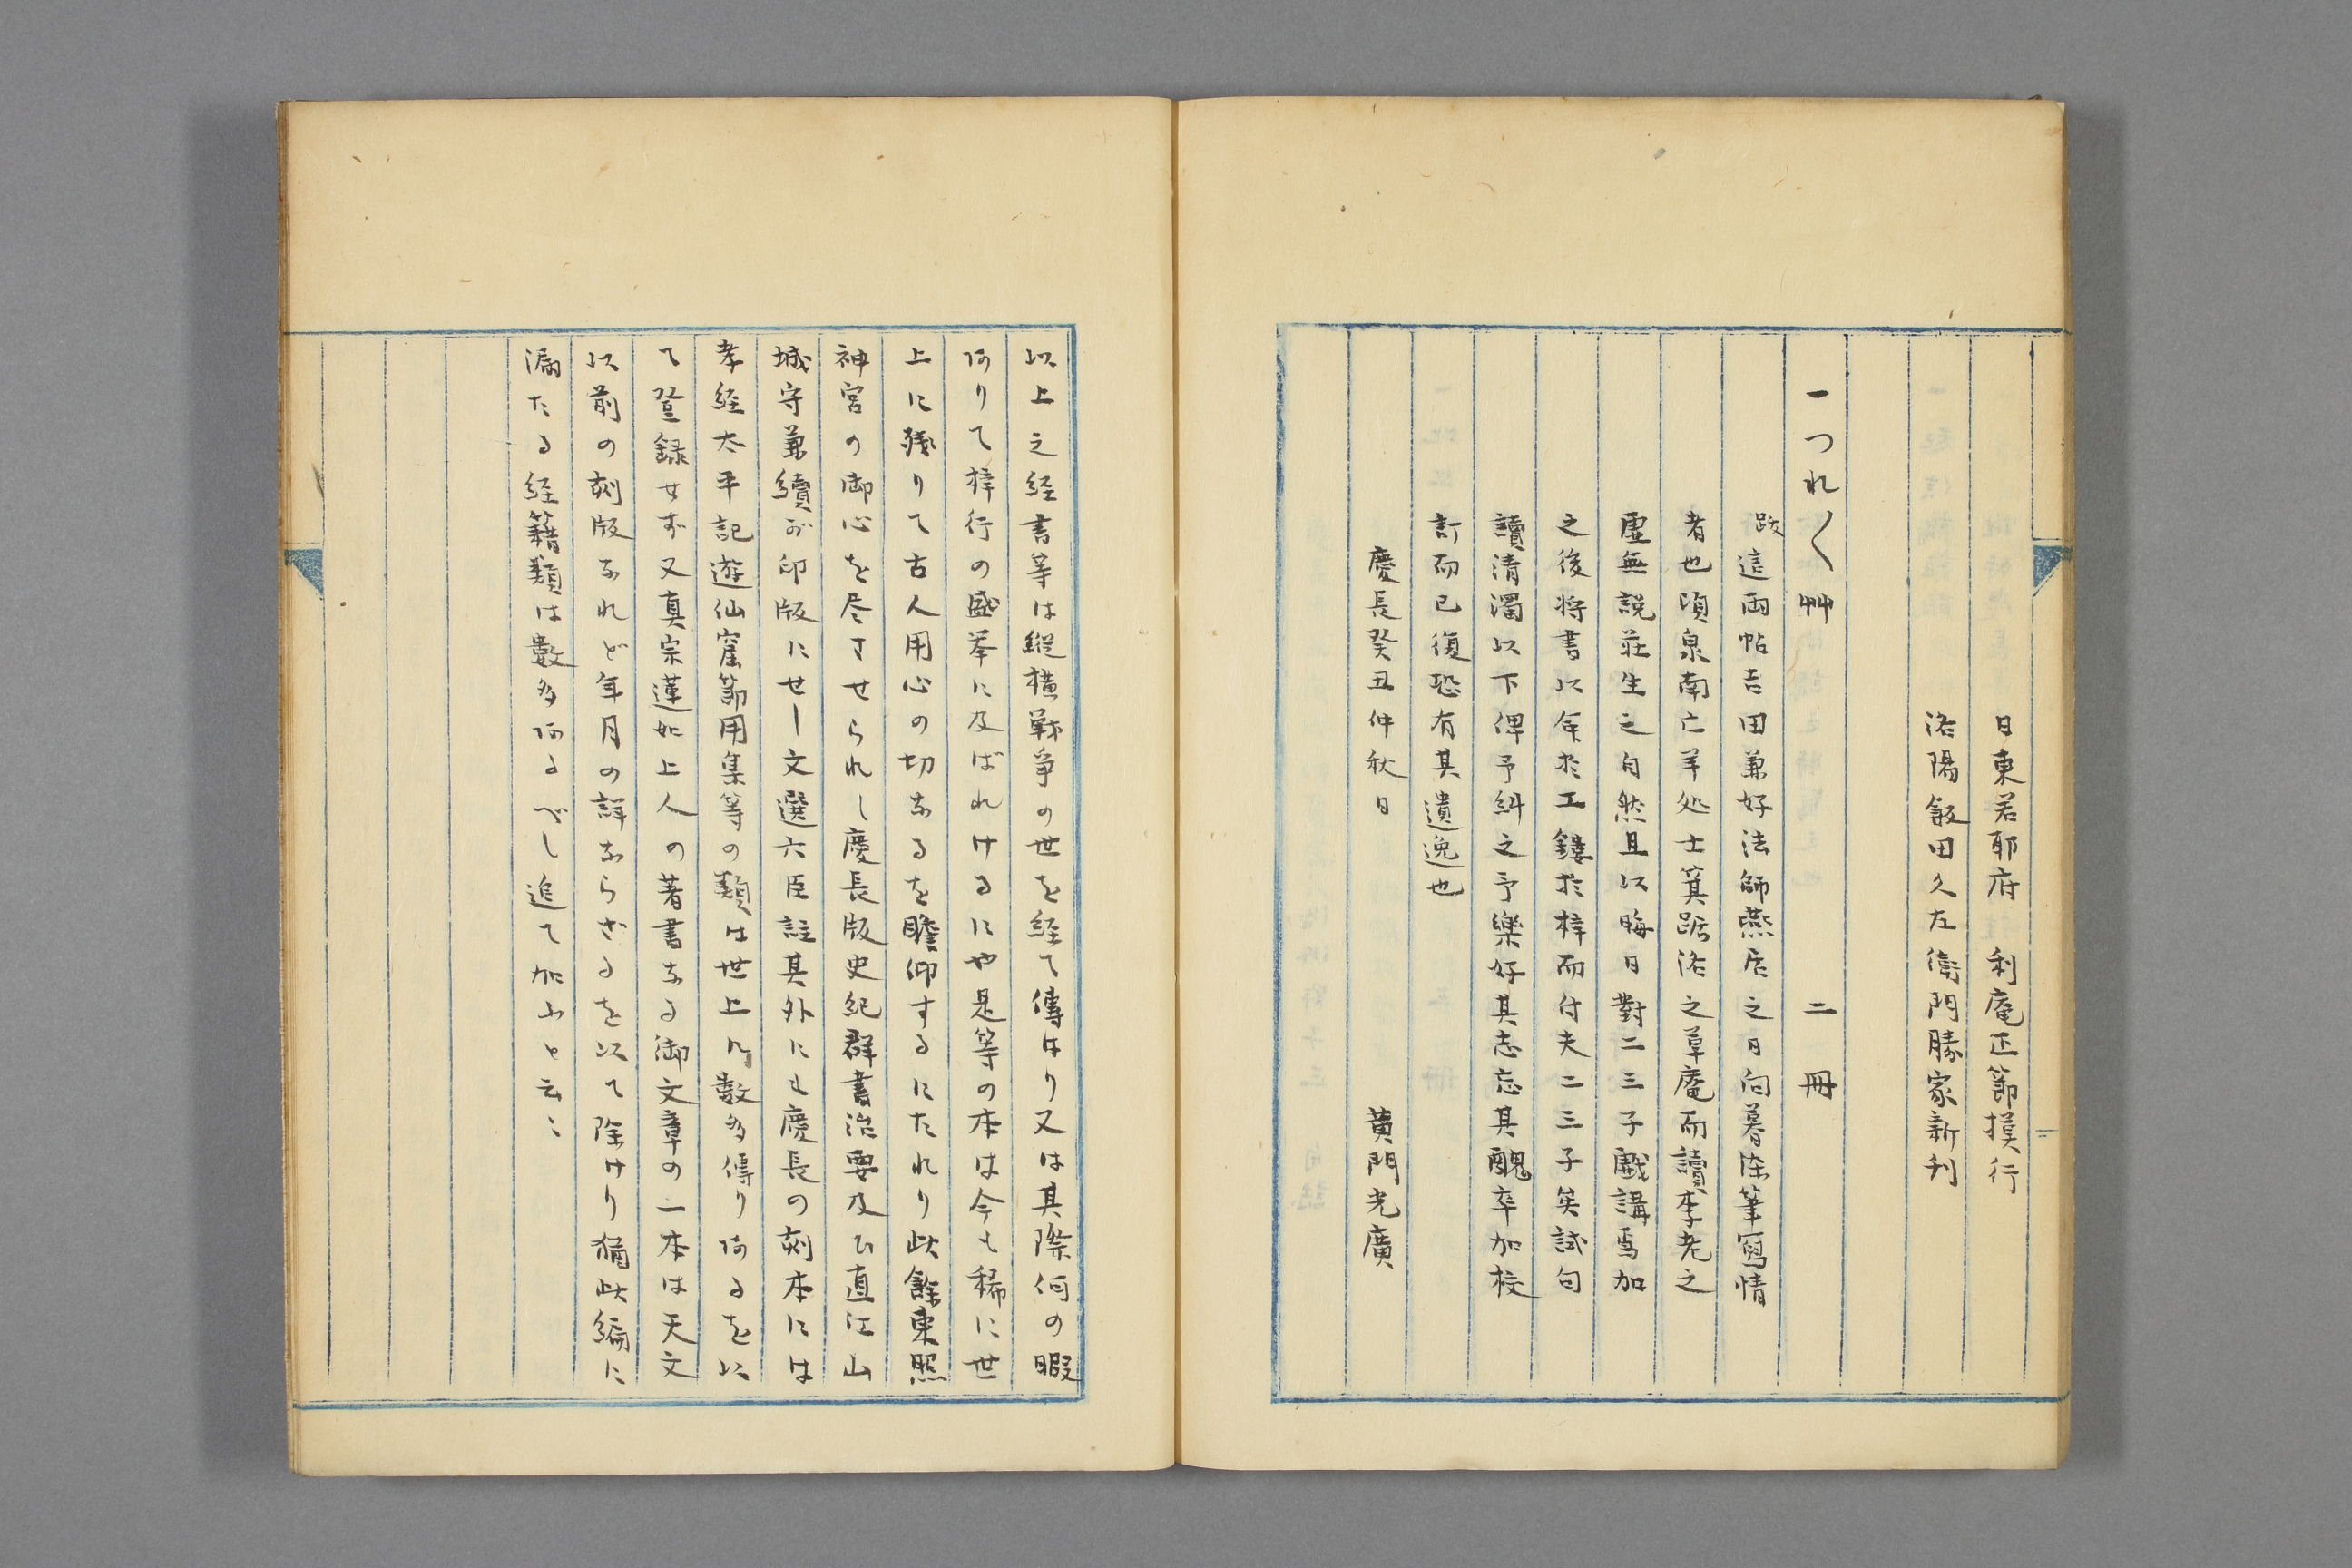 日東若耶府　利庵正節摸行
洛陽飯田久左衛門勝家新刋
一つれ〱艸　　二冊
跋 這兩帖吉田兼好法師燕居之日向暮染筆寫情
者也頃泉南亡羊処士箕踞洛之草庵而讀李老之
虚無説莊生之自然且以晦日對二三子戯講焉加
之後将書以命於工鏤於梓而付夫二三子矣試句
讀清濁以下俾予糾之予樂好其志忘其醜卒加校
訂而已復恐有其遺逸也
慶長癸丑仲秋日　　黄門光廣
以上之経書等は縦横戦爭の世を経て傳はり又は其際何の暇
ありて梓行の盛挙に及ばれけるにや是等の本は今も稀に世
上に残りて古人用心の切なるを瞻仰するにたれり此餘東照
神宮の御心を尽させられし慶長版史紀群書治要及ひ直江山
城守兼續が印版にせし文選六臣註其外にも慶長の刻本には
孝経太平記遊仙窟節用集等の類は世上凡數多傳りあるを以
て登録せず又真宗蓮如上人の著書なる御文章の一本は天文
以前の刻版なれど年月の詳ならざるを以て除けり猶此編に
漏たる経籍類は數多あるべし追て加ふと云〻